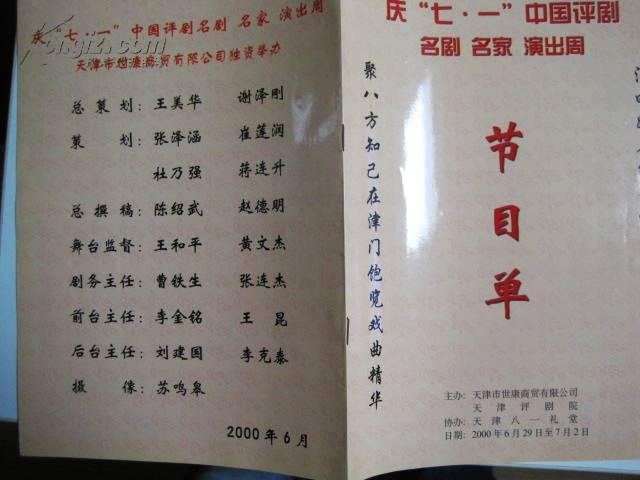 庆“七·一”中国评剧名剧 名家 演出周
天津市世康商贸有限公司独资举办
总策划：王美华 谢泽刚
策划：张泽涵 崔莲润
杜乃强 蒋连升
总撰稿：陈绍武 赵德明
舞台监督：王和平 黄文杰
剧务主任：曹铁生 张连杰
前台主任：李金铭 王昆
后台主任：刘建国 李克泰
摄像：苏鸣皋
2000年6月
庆“七·一”中国评剧
名剧 名家 演出周
聚八方知己在津门饱览戏曲精华
节目单
主办：天津市世康商贸有限公司
天津评剧院
协办：天津八一礼堂
日期：2000年6月29日至7月2日